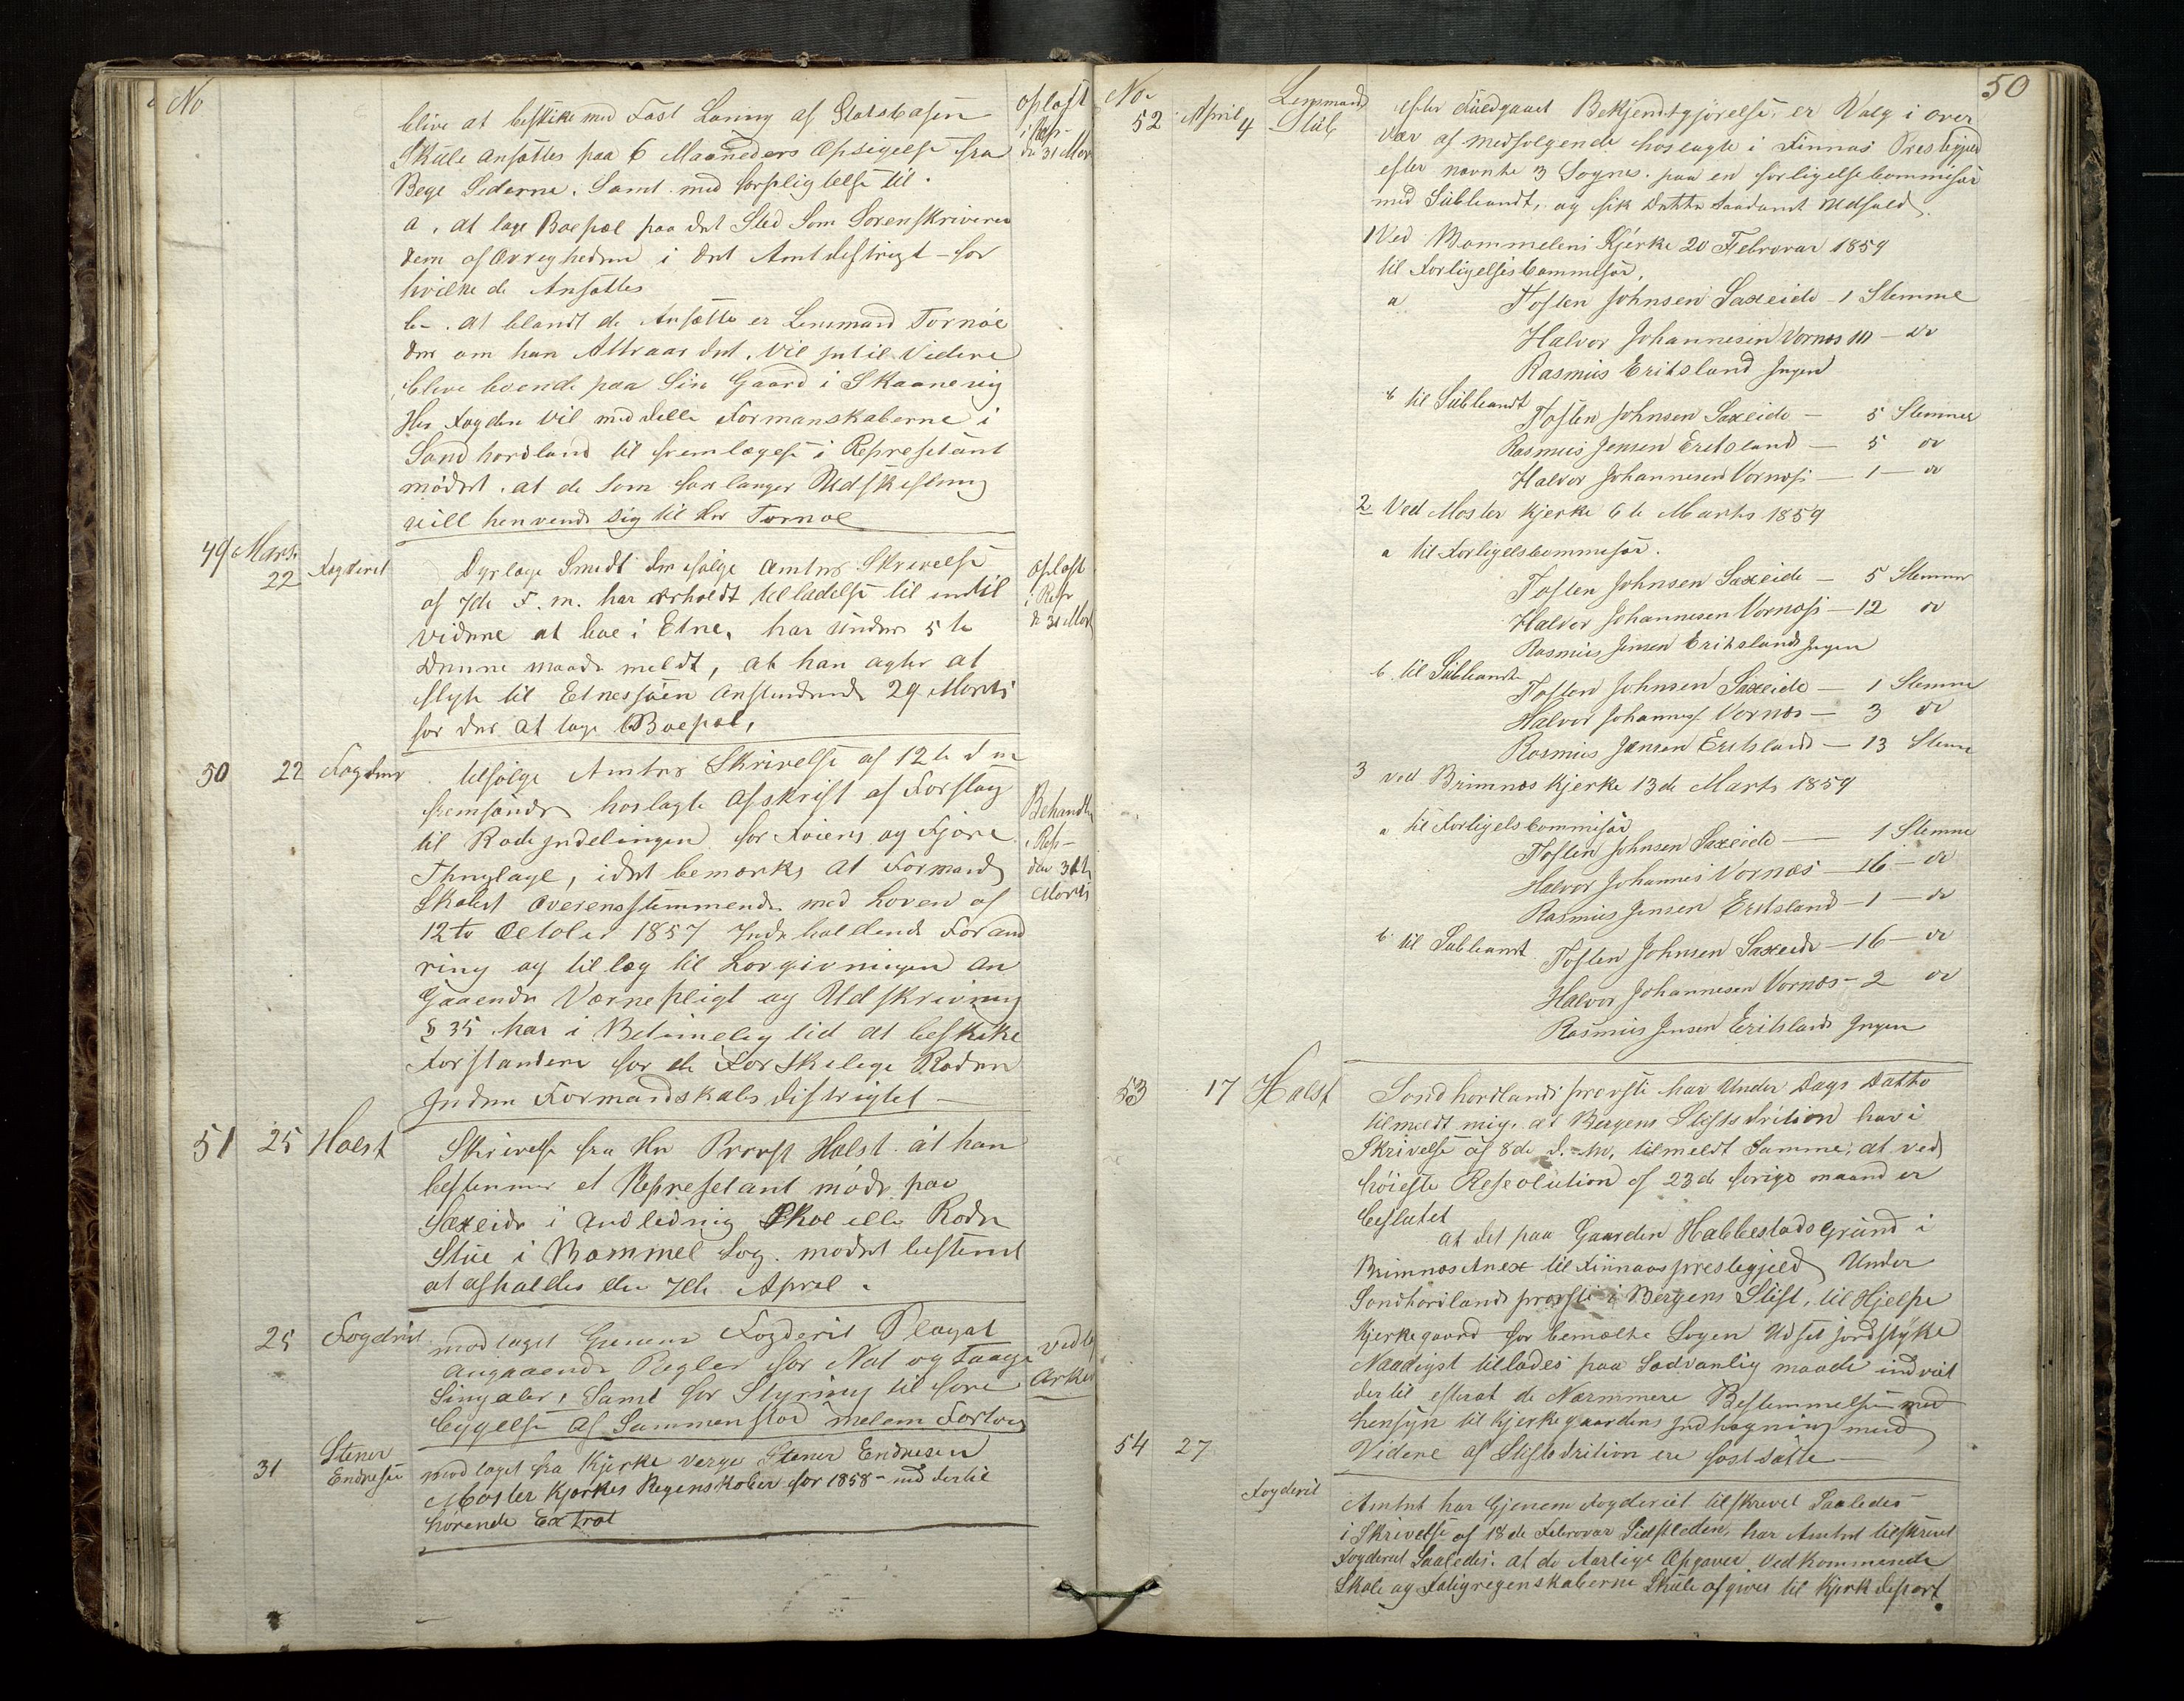 No
blive at beskike med Fast Lønning af Statskassen
Skule Ansættes paa 6 Maaneders Opsigelse fra
Bege Siderne. Samt med forpligtelse til.
a. at tage Boepæl paa det Sted Som Sorenskriveren
dem af Øvrigheden i det Amtdistrigt for
hvilke de Ansættes
b. at blandt de Ansætte er Lensmand Tornøe
der om han Attraar det, vil intil Videre
blive boende paa Sin Gaard i Skaanevig
Her Fogden vil meddelle Formanskaberne i
Søndhordland til fremlægese i Represetant
mødet. at de Som forlanger Udskiftning
vill henvende sig til Hr Tornøe
Oplest
i Rep-
d 31 Mar
49 Mars 22 Fogderiet
Dyrlæge Smidt der ifølge Amtets Skrivelse
af 7de F. m. har erholdt telladelse til indtil
videre at boe i Etne, har under 5te
Denne maade meldt, at han agter at
flytte til Etnessøen Anstundende 29 Marts
for der at tage Boepæl,
Oplest
i Repr
d 31 Mart
50 22 Fogden
tilfølge Amtets Skrivelse af 12te d m
fremsænder hoslagte Afskrift af Forslag
til Rodeindelingen for Føiens og Fjære
Thinglage, idet bemærkes at Formand
Skabet Overensstemmende med Loven af
12te October 1857 Indeholdende Forand
ring og tillæg til Lovgivningen An
Gaaende Værnepligt og Udskrivning
§ 35 har i Betimelig tid at beskikke
Forstandere for de Forskelege Roder
Inden Formandskabs distrigtet
Behandlet
i Rep-
den 31te
Marts
51 25 Holst
Skrivelse fra Hr Provst Holst at han
bestemmer et Represetant møde paa
Sæxeide i Andledning Skoe elle Rode
Stue i Bømmel Sog. mødet bestemt
at afholdes den 7de April.
25 Fogderiet
modtaget Gjenem Fogderiet Placat
Angaaende Regler for Nat og Taage
Singaler, Samt for Styring til fore
byggelse af Sammenstød melem Fartøy
vedl
Arkiv
31 Stener Endresen
modtaget fra Kjerke verge Stener Endresen
Moster Kjerkes Regenskaber for 1858 med dertil
hørende Extrat
50
No
52 April 4 Lensmand Stub
efter tuldgaaet Bekjendtgjørelse, er Valg i over
vær af medfølgende hoslagte i Finnaas Prestegjeld
efter nævnte 3 Sogne. paa en forligelsecommisær
med Subleandt, og fik Dette Saadant Udfald.
1 Ved Bømmelens Kjerke 20 Februar 1859
til Forligelsescommisær,
a Tosten Johnsen Sæxeide 1 Stemme
Halvor Johannesen Vornæs 10 do
Rasmus Eritsland Ingen
b til Subleandt
Tosten Johnsen Sæxeide 5 Stemmer
Rasmus Jensen Eritsland 5 do
Halvor Johannesen Vornæs 1 do
2 Ved Moster Kjerke 6te Marts 1859
a til Forligelscommisær.
Tosten Johnsen Sæxeide 5 Stemmer
Halvor Johannesen Vornæs 12 do
Rasmus Jensen Eritsland Ingen
b. til Subleandt
Tosten Johnsen Sæxeide 1 Stemme
Halvor Johannes Vornæs 3 do
Rasmus Jensen Eritsland 13 Stemmer
3 ved Brimnæs Kjerke 13de Marts 1859
a til Forligelscommisær
Tosten Johnsen Sæxeide 1 Stemme
Halvor Johannes Vornæs 16 do
Rasmus Jensen Eritsland 1 do
b. til Subleant Tosten Johnsen Sæxeide 16 do
Halvor Johannesen Vornæs 2 do
Rasmus Jensen Eritsland Ingen
53 17 Holst
Søndhordlands provsti har Under Dags Datto
tilmeldt mig. at Bergens Stiftsdrition har i
Skrivelse af 8de d. m. tilmeldt Samme, at ved
høieste Resolution af 23de forige maand er
besluttet
at det paa Gaarden Habbestads Grund i
Brimnæs Anex til Finnaas prestegjeld Under
Søndhordlands provsti i Bergens Stift, til Hjelpe
Kjerkegaard for bemælte Sogen Udset jordstykke
Naadigst tillades paa Sædvanlig maade indviet
dertil efterat de Nærmmere Bestemmelser med
hensyn til Kjerkegaardens Indhægning med
Videre af Stiftsdrition ere fastsatte
54 27 Fogderiet
Amtet har Gjenem Fogderiet tilskrevet Saaledes
i Skrivelse af 18de Februar Sidstleden, har Amtet tilskrevet
Fogderiet Saaledes. at de Aarlige Opgaver Vedkommende
Skole og Fatigregenskaberne Skule afgives til Kjerkdepart.